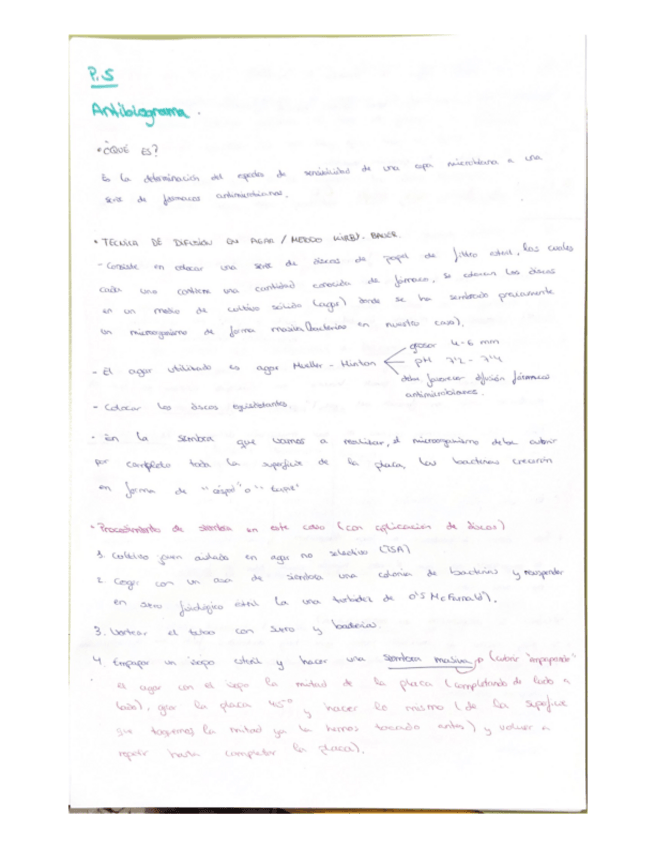 P.5
Antibiograma.
• ¿QUÉ ES?
Es la determinación del espectro de sensibilidad de una cepa microbiana a una
serie de fármacos antimicrobianos.
• TÉCNICA DE DIFUSIÓN EN AGAR / METODO KIRBY-BAUER.
- Consiste en colocar una serie de discos de papel de filtro estéril, los cuales
cada uno contiene una cantidad conocida de fármaco, se colocan los discos
en un medio de cultivo sólido (agar) donde se ha sembrado previamente
un microorganismo de forma masiva (bacterias en nuestro caso).
- El agar utilizado es agar Mueller-Hinton
grosor 4-6 mm
pH 7'2 - 7'4
debe favorecer difusión fármacos
antimicrobianos.
- Colocar los discos equidistantes.
- En la siembra que vamos a realizar, el microorganismo debe cubrir
por completo toda la superficie de la placa, las bacterias crecerán
en forma de "césped" o
• Procedimiento de siembra en este caso (con aplicación de discos)
1. Cultivo joven aislado en agar no selectivo (TSA)
2. Coger con un asa de siembra una colonia de bacterias y resuspender
en suero fisiológico estéril (a una turbidez de 0'5 McFarland).
3. Vortear el tubo con suero y bacterias.
4. Empapar un isopo estéril y hacer una siembra masiva (cubrir "impregnando"
el agar con el isopo la mitad de la placa (completando de lado a
lado), girar la placa 45º y hacer lo mismo (de la superficie
que tenemos la mitad ya la hemos tocado antes) y volver a
repetir hasta completar la placa).